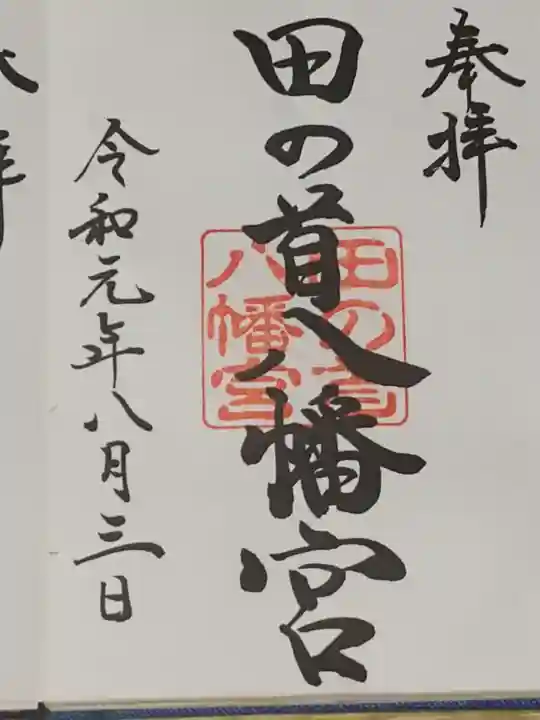 奉拝
田の首八幡宮
田の首
八幡宮
令和元年八月三日
拝